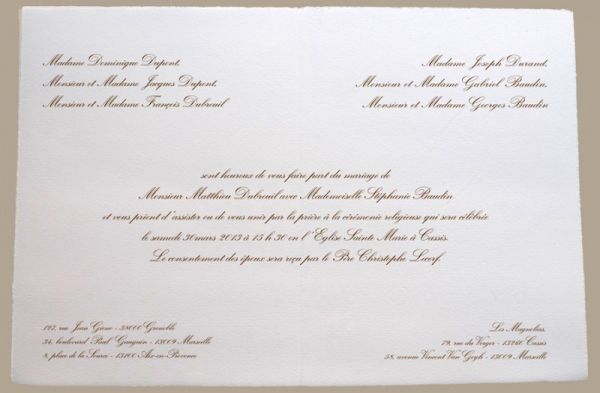 Madame Dominique Dupont,
Monsieur et Madame Jacques Dupont,
Monsieur et Madame François Dubreuil
Madame Joseph Durand,
Monsieur et Madame Gabriel Baudin,
Monsieur et Madame Georges Baudin
sont heureux de vous faire part du mariage de
Monsieur Matthieu Dubreuil avec Mademoiselle Stéphanie Baudin
et vous prient d'assister ou de vous unir par la prière à la cérémonie religieuse qui sera célébrée
le samedi 30 mars 2013 à 15 h 30 en l'Eglise Sainte Marie à Cassis.
Le consentement des époux sera reçu par le Père Christophe Lecerf.
127, rue Jean Giono - 38000 Grenoble
34, boulevard Paul Gauguin - 13009 Marseille
8, place de la Source - 13100 Aix-en-Provence
Les Magnolias,
79, rue du Verger - 13260 Cassis
58, avenue Vincent Van Gogh - 13009 Marseille